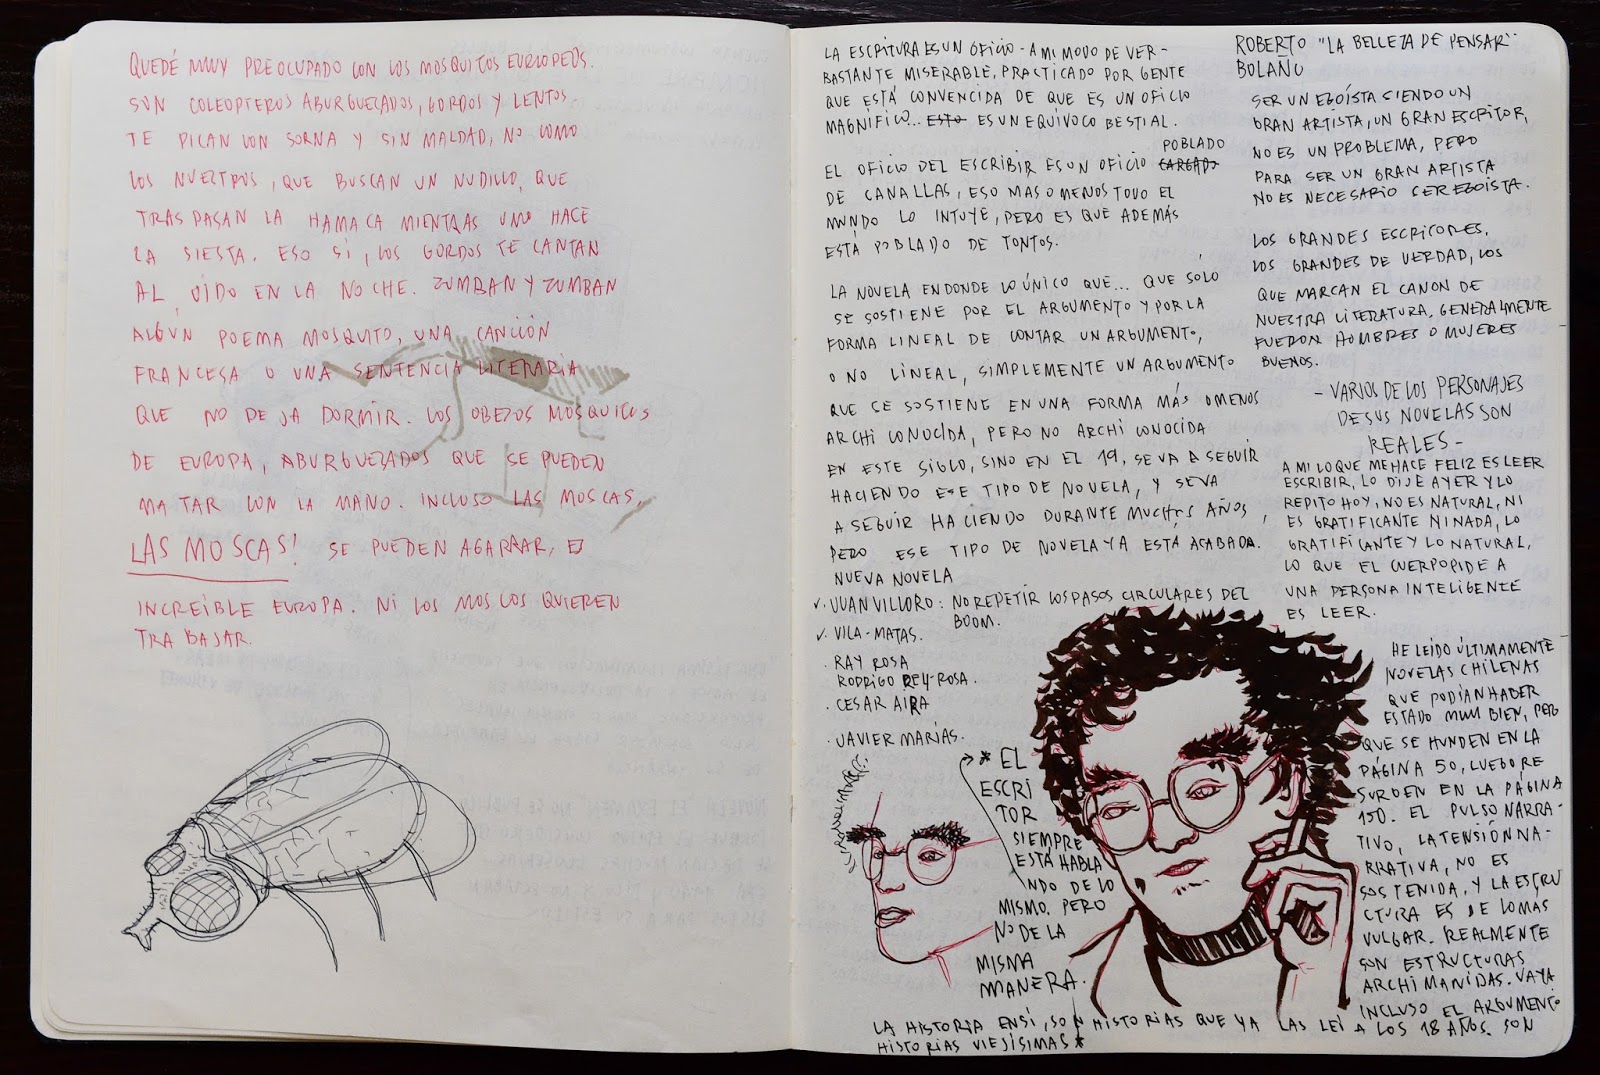 QUEDÉ MUY PREOCUPADO CON LOS MOSQUITOS EUROPEOS.
SON COLEOPTEROS ABURGUESADOS, GORDOS Y LENTOS.
TE PICAN CON SORNA Y SIN MALDAD, NO COMO
LOS NUESTROS, QUE BUSCAN UN NUDILLO, QUE
TRASPASAN LA HAMACA MIENTRAS UNO HACE
LA SIESTA. ESO SÍ, LOS GORDOS TE CANTAN
AL OIDO EN LA NOCHE. ZUMBAN Y ZUMBAN
ALGÚN POEMA MOSQUITO, UNA CANCIÓN
FRANCESA O UNA SENTENCIA LITERARIA
QUE NO DEJA DORMIR. LOS OBESOS MOSQUITOS
DE EUROPA, ABURGUESADOS QUE SE PUEDEN
MATAR CON LA MANO. INCLUSO LAS MOSCAS,
LAS MOSCAS! SE PUEDEN AGARRAR, ES
INCREIBLE EUROPA. NI LOS MOSCOS QUIEREN
TRABAJAR.
LA ESCRITURA ES UN OFICIO - A MI MODO DE VER -
BASTANTE MISERABLE, PRACTICADO POR GENTE
QUE ESTÁ CONVENCIDA DE QUE ES UN OFICIO
MAGNÍFICO.. ESTO ES UN EQUÍVOCO BESTIAL.
POBLADO
EL OFICIO DEL ESCRIBIR ES UN OFICIO CARGADO
DE CANALLAS, ESO MAS O MENOS TODO EL
MUNDO LO INTUYE, PERO ES QUE ADEMÁS
ESTÁ POBLADO DE TONTOS.
LA NOVELA EN DONDE LO ÚNICO QUE... QUE SÓLO
SE SOSTIENE POR EL ARGUMENTO Y POR LA
FORMA LINEAL DE CONTAR UN ARGUMENTO,
O NO LINEAL, SIMPLEMENTE UN ARGUMENTO
QUE SE SOSTIENE EN UNA FORMA MÁS O MENOS
ARCHI CONOCIDA, PERO NO ARCHI CONOCIDA
EN ESTE SIGLO, SINO EN EL 19, SE VA A SEGUIR
HACIENDO ESE TIPO DE NOVELA, Y SE VA
A SEGUIR HACIENDO DURANTE MUCHOS AÑOS,
PERO ESE TIPO DE NOVELA YA ESTÁ ACABADA.
NUEVA NOVELA
✓. JUAN VILLORO: NO REPETIR LOS PASOS CIRCULARES DEL
BOOM.
✓. VILA-MATAS.
. RAY ROSA
RODRIGO REY-ROSA.
. CESAR AIRA
. JAVIER MARÍAS.
* EL
ESCRI
TOR
SIEMPRE
ESTÁ HABLA
NDO DE LO
MISMO. PERO
NO DE LA
MISMA
MANERA.
ROBERTO "LA BELLEZA DE PENSAR"
BOLAÑO
SER UN EGOÍSTA SIENDO UN
GRAN ARTISTA, UN GRAN ESCRITOR,
NO ES UN PROBLEMA, PERO
PARA SER UN GRAN ARTISTA
NO ES NECESARIO SER EGOISTA.
LOS GRANDES ESCRITORES,
LOS GRANDES DE VERDAD, LOS
QUE MARCAN EL CANON DE
NUESTRA LITERATURA, GENERALMENTE
FUERON HOMBRES O MUJERES
BUENOS.
- VARIOS DE LOS PERSONAJES
DE SUS NOVELAS SON
REALES -
A MI LO QUE ME HACE FELIZ ES LEER
ESCRIBIR, LO DIJE AYER Y LO
REPITO HOY, NO ES NATURAL, NI
ES GRATIFICANTE NI NADA, LO
GRATIFICANTE Y LO NATURAL,
LO QUE EL CUERPO PIDE A
UNA PERSONA INTELIGENTE
ES LEER.
HE LEÍDO ÚLTIMAMENTE
NOVELAS CHILENAS
QUE PODÍAN HABER
ESTADO MUY BIEN, PERO
QUE SE HUNDEN EN LA
PÁGINA 50, LUEGO RE
SURGEN EN LA PÁGINA
150. EL PULSO NARRA-
TIVO, LA TENSIÓN NA-
RRATIVA, NO ES
SOSTENIDA, Y LA ESTRU
CTURA ES DE LO MAS
VULGAR. REALMENTE
SON ESTRUCTURAS
ARCHIMANIDAS. VAYA
INCLUSO EL ARGUMENTO
LA HISTORIA EN SÍ, SON HISTORIAS QUE YA LAS LEÍ A LOS 18 AÑOS. SON
HISTORIAS VIEJÍSIMAS *